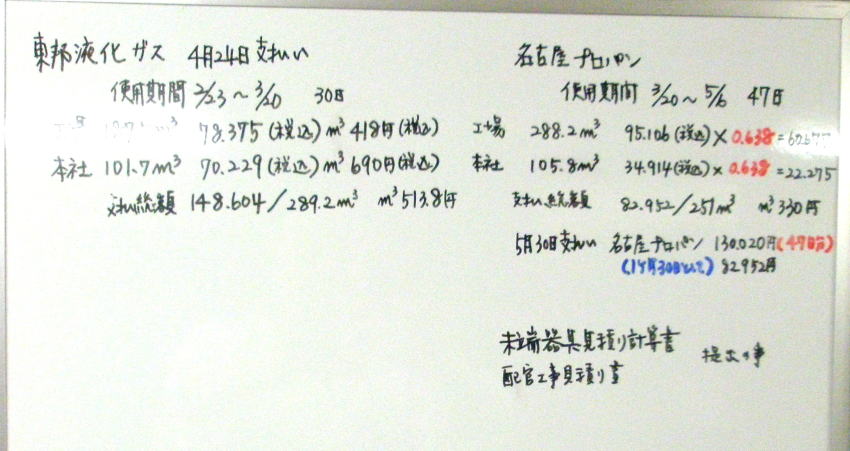 東邦液化ガス 4月24日支払い
使用期間 2/23～3/20 30日
工場 m³ 78.375(税込) m³ 418円(税込)
本社 101.7m³ 70.229(税込) m³ 690円(税込)
支払総額 148.604/289.2m³ m³ 513.8円
名古屋プロパン
使用期間 3/20～5/6 47日
工場 288.2m³ 95.106(税込)×0.638=60.677
本社 105.8m³ 34.914(税込)×0.638=22.275
支払い総額 82.952/251m³ m³ 330円
5月30日支払い 名古屋プロパン 130.020円(47日分)
(1ヶ月30日として) 82.952円
末端器具見積り計算書
配管工事見積り書
提出の事